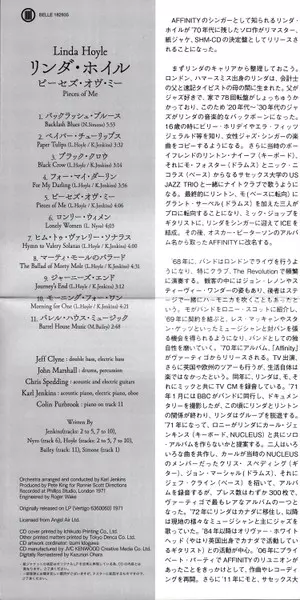 BELLE 182930
Linda Hoyle
リンダ・ホイル
ピーセズ・オヴ・ミー
Pieces of Me
1. バックラッシュ・ブルース
Backlash Blues (N.Simone) 5:53
2. ペイパー・チューリップス
Paper Tulips (L.Hoyle / K.Jenkins) 3:32
3. ブラック・クロウ
Black Crow (L.Hoyle / K.Jenkins) 3:14
4. フォー・マイ・ダーリン
For My Darling (L.Hoyle / K.Jenkins) 3:56
5. ピーセズ・オヴ・ミー
Pieces of Me (L.Hoyle / K.Jenkins) 4:06
6. ロンリー・ウィメン
Lonely Women (L. Nyro) 4:03
7. ヒム・トゥ・ヴァレリー・ソナラス
Hymn to Valery Solanas (L.Hoyle / K.Jenkins) 4:00
8. マーティ・モールのバラード
The Ballad of Morty Mole (L.Hoyle / K.Jenkins) 4:31
9. ジャーニーズ・エンド
Journey's End (L.Hoyle / K.Jenkins) 3:12
10. モーニング・フォー・ワン
Morning for One (L.Hoyle / K.Jenkins) 4:21
11. バレル・ハウス・ミュージック
Barrel House Music (M.Bailey) 2:48
Jeff Clyne : double bass, electric bass
John Marshall : drums, percussion
Chris Spedding : acoustic and electric guitars
Karl Jenkins : acoustic piano, electric piano, oboe
Colin Purbrook : piano on track 11
Written By
Jenkins(tracks: 2 to 5, 7 to 10),
Nyro (track 6), Hoyle (tracks: 2 to 5, 7 to 10),
Bailey (track: 11), Simone (track 1)
Orchestra arranged and conducted by Karl Jenkins
Produced by Pete King for Ronnie Scott Directions
Recorded at Phillips Studio, London 1971
Engineered by Roger Wake
Originally released on LP (Vertigo 6360060) 1971
Licensed from Angel Air Ltd.
CD cover printed by Ichikudo Printing Co., Ltd.
Other printed matters printed by Tokyo Danca Co. Ltd.
CD artwork cordinator: Izumi Idogawa
CD manufactured by JVC KENWOOD Creative Media Co. Ltd.
Digitally Remastered by Kazunori Ohara
AFFINITYのシンガーとして知られるリンダ・
ホイルの'70年代に残したソロ作がリマスター、
紙ジャケ、SHM-CDの決定盤としてリリースさ
れることになった。
まずリンダのキャリアから整理しておこう。
ロンドン、ハマースミス出身のリンダは、会計士
の父と速記タイピストの母の間に生まれた。父が
ジャズ好きで、家で78回転盤がしょっちゅうか
かっており、このため'20年代～'30年代のジャ
ズがリンダの音楽的なバックボーンになった。
16歳の時にビリー・ホリデイやエラ・フィッツ
ジェラルド等を知り、女性ジャズ・シンガーの楽
曲をコピーするようになる。さらに当時のボー
イフレンドのリントン・ナイーフ(キーボード)、
それにモ・フォスター(ドラムス)とニック・ニ
コラス(ベース)からなるサセックス大学のUS
JAZZ TRIOと一緒にナイトクラブで歌うように
なる。最終的にリントン、モ(ベースに転向)に
グラント・サーペル(ドラムス)を加えた三人が
プロに転向することになり、ミック・ジョップを
ギタリストに、リンダをシンガーに迎えてICEを
結成。その後、オスカー・ピーターソンのアルバ
ム名から取ったAFFINITYに改名する。
'68年に、バンドはロンドンでライヴを行うよ
うになり、特にクラブ、The Revolutionで頻繁
に演奏する。観客の中にはジョン・レノンやス
ティーヴィー・ワンダーの姿もあり、後者はステ
ージで一緒にハーモニカを吹くこともあったと
いう。モがバンドをロニー・スコットに紹介し、
'69年に契約を結ぶと、レス・マッキャンやスタ
ン・ゲッツといったミュージシャンと対バンを張
る機会を得られるようになり、バンドとしての独
自性を築いていく。'70年にアルバム、『Affinity』
がヴァーティゴからリリースされる。TV出演、
さらに英国や欧州のツアーも行うが、生活自体は
楽ではなかったという。同年に、リンダは、モ、そ
れにミックと共にTV CMを録音している。'71
年1月にはBBCがバンドに同行し、ドキュメン
タリーを撮影したが、この頃にリンダとリントン
の関係が終わり、リンダはグループを脱退する。
'71年になって、ロニーがリンダにカール・ジェ
ンキンス(キーボード、NUCLEUS)と共にソロ
・アルバムを作らないかと提案する。二人はいろ
いろな曲を共作し、カールが当時のNUCLEUS
のメンバーだったクリス・スペディング(ギ
ター)、ジョン・マーシャル(ドラムス)、それに
ジェフ・クライン(ベース)を招いて、アルバ
ムを録音するが、プレス数はわずか300枚で、
ヴァーティゴで最もレアなアルバムの一つとな
った。'72年にリンダはカナダに移住し、以降は
現地の様々なミュージシャンと主にジャズを
歌っていた。'84年以降はオリヴァー・ホワイト
ヘッド(やはり英国出身でカナダで活動してい
るギタリスト)との活動が中心。'06年にプライ
ベート・パーティでAFFINITYのリユニオンが
あったことをきっかけとして、作曲やレコーディ
ングを再開。さらに'11年にモと、サセックス大